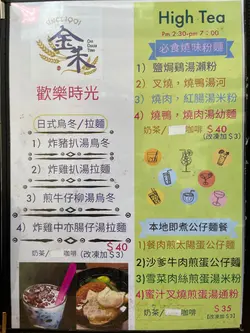 金禾
歡樂時光
日式烏冬/拉麵
1）炸豬扒湯烏冬
2）炸雞扒湯拉麵
3）煎牛仔柳湯烏冬
4）炸雞中亦腸仔湯拉麵
$40
奶茶/ 咖啡（改凍加$3）
High Tea
Pm 2:30-pm
必食燒味粉麵
1）鹽焗鷄湯瀨粉
2）叉燒，燒鴨湯河
3）燒肉，紅腸湯米粉
4）燒鴨，燒肉湯幼麵
奶茶/ 咖啡 $40
（改凍加$3）
本地即煮公仔麵餐
1)餐肉煎太陽蛋公仔麵
2)沙爹牛肉煎蛋公仔麵
3)雪菜肉絲煎蛋湯米粉
4)蜜汁叉燒煎蛋湯通粉
奶茶/ 咖啡 $35
（改凍加$3）